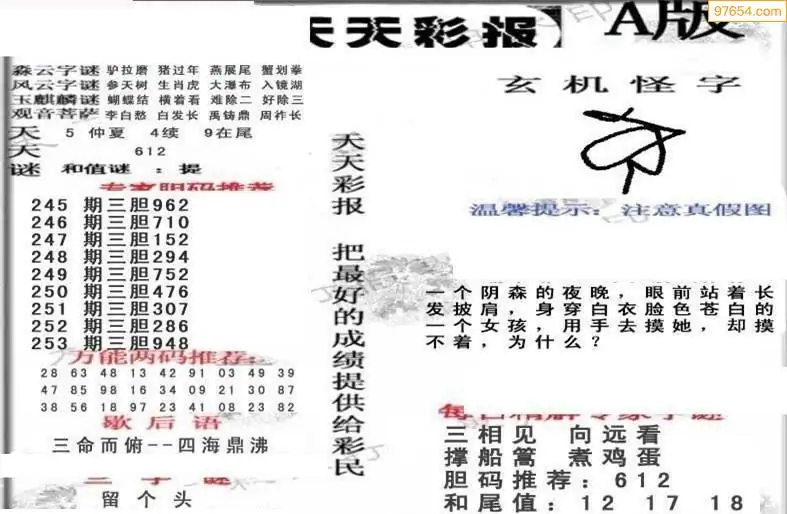 97654.com
天天彩报】A版
森云字谜 驴拉磨 猪过年 燕展尾 蟹划拳
风云字谜 参天树 生肖虎 大瀑布 入镜湖
玉麒麟谜 蝴蝶结 横着看 难除二 好除三
观音菩萨 李白愁 白发长 禹铸鼎 周祚长
天 5 仲夏 4续 9在尾
天 612
谜 和值谜 :提
专家胆码推荐
245 期三胆962
246 期三胆710
247 期三胆152
248 期三胆294
249 期三胆752
250 期三胆476
251 期三胆307
252 期三胆286
253 期三胆948
万能两码推荐:
28 63 48 13 42 91 03 49 39
47 85 98 16 34 09 21 30 87
38 56 18 97 23 41 08 23 82
歇后语
三命而俯--四海鼎沸
三字谜
留个头
天天彩报 把最好的成绩提供给彩民
玄机怪字
温馨提示:注意真假图
一个阴森的夜晚,眼前站着长
发披肩,身穿白衣脸色苍白的
一个女孩,用手去摸她,却摸
不着,为什么?
每日精解专家字谜
三相见 向远看
撑船篙 煮鸡蛋
胆码推荐:612
和尾值:12 17 18